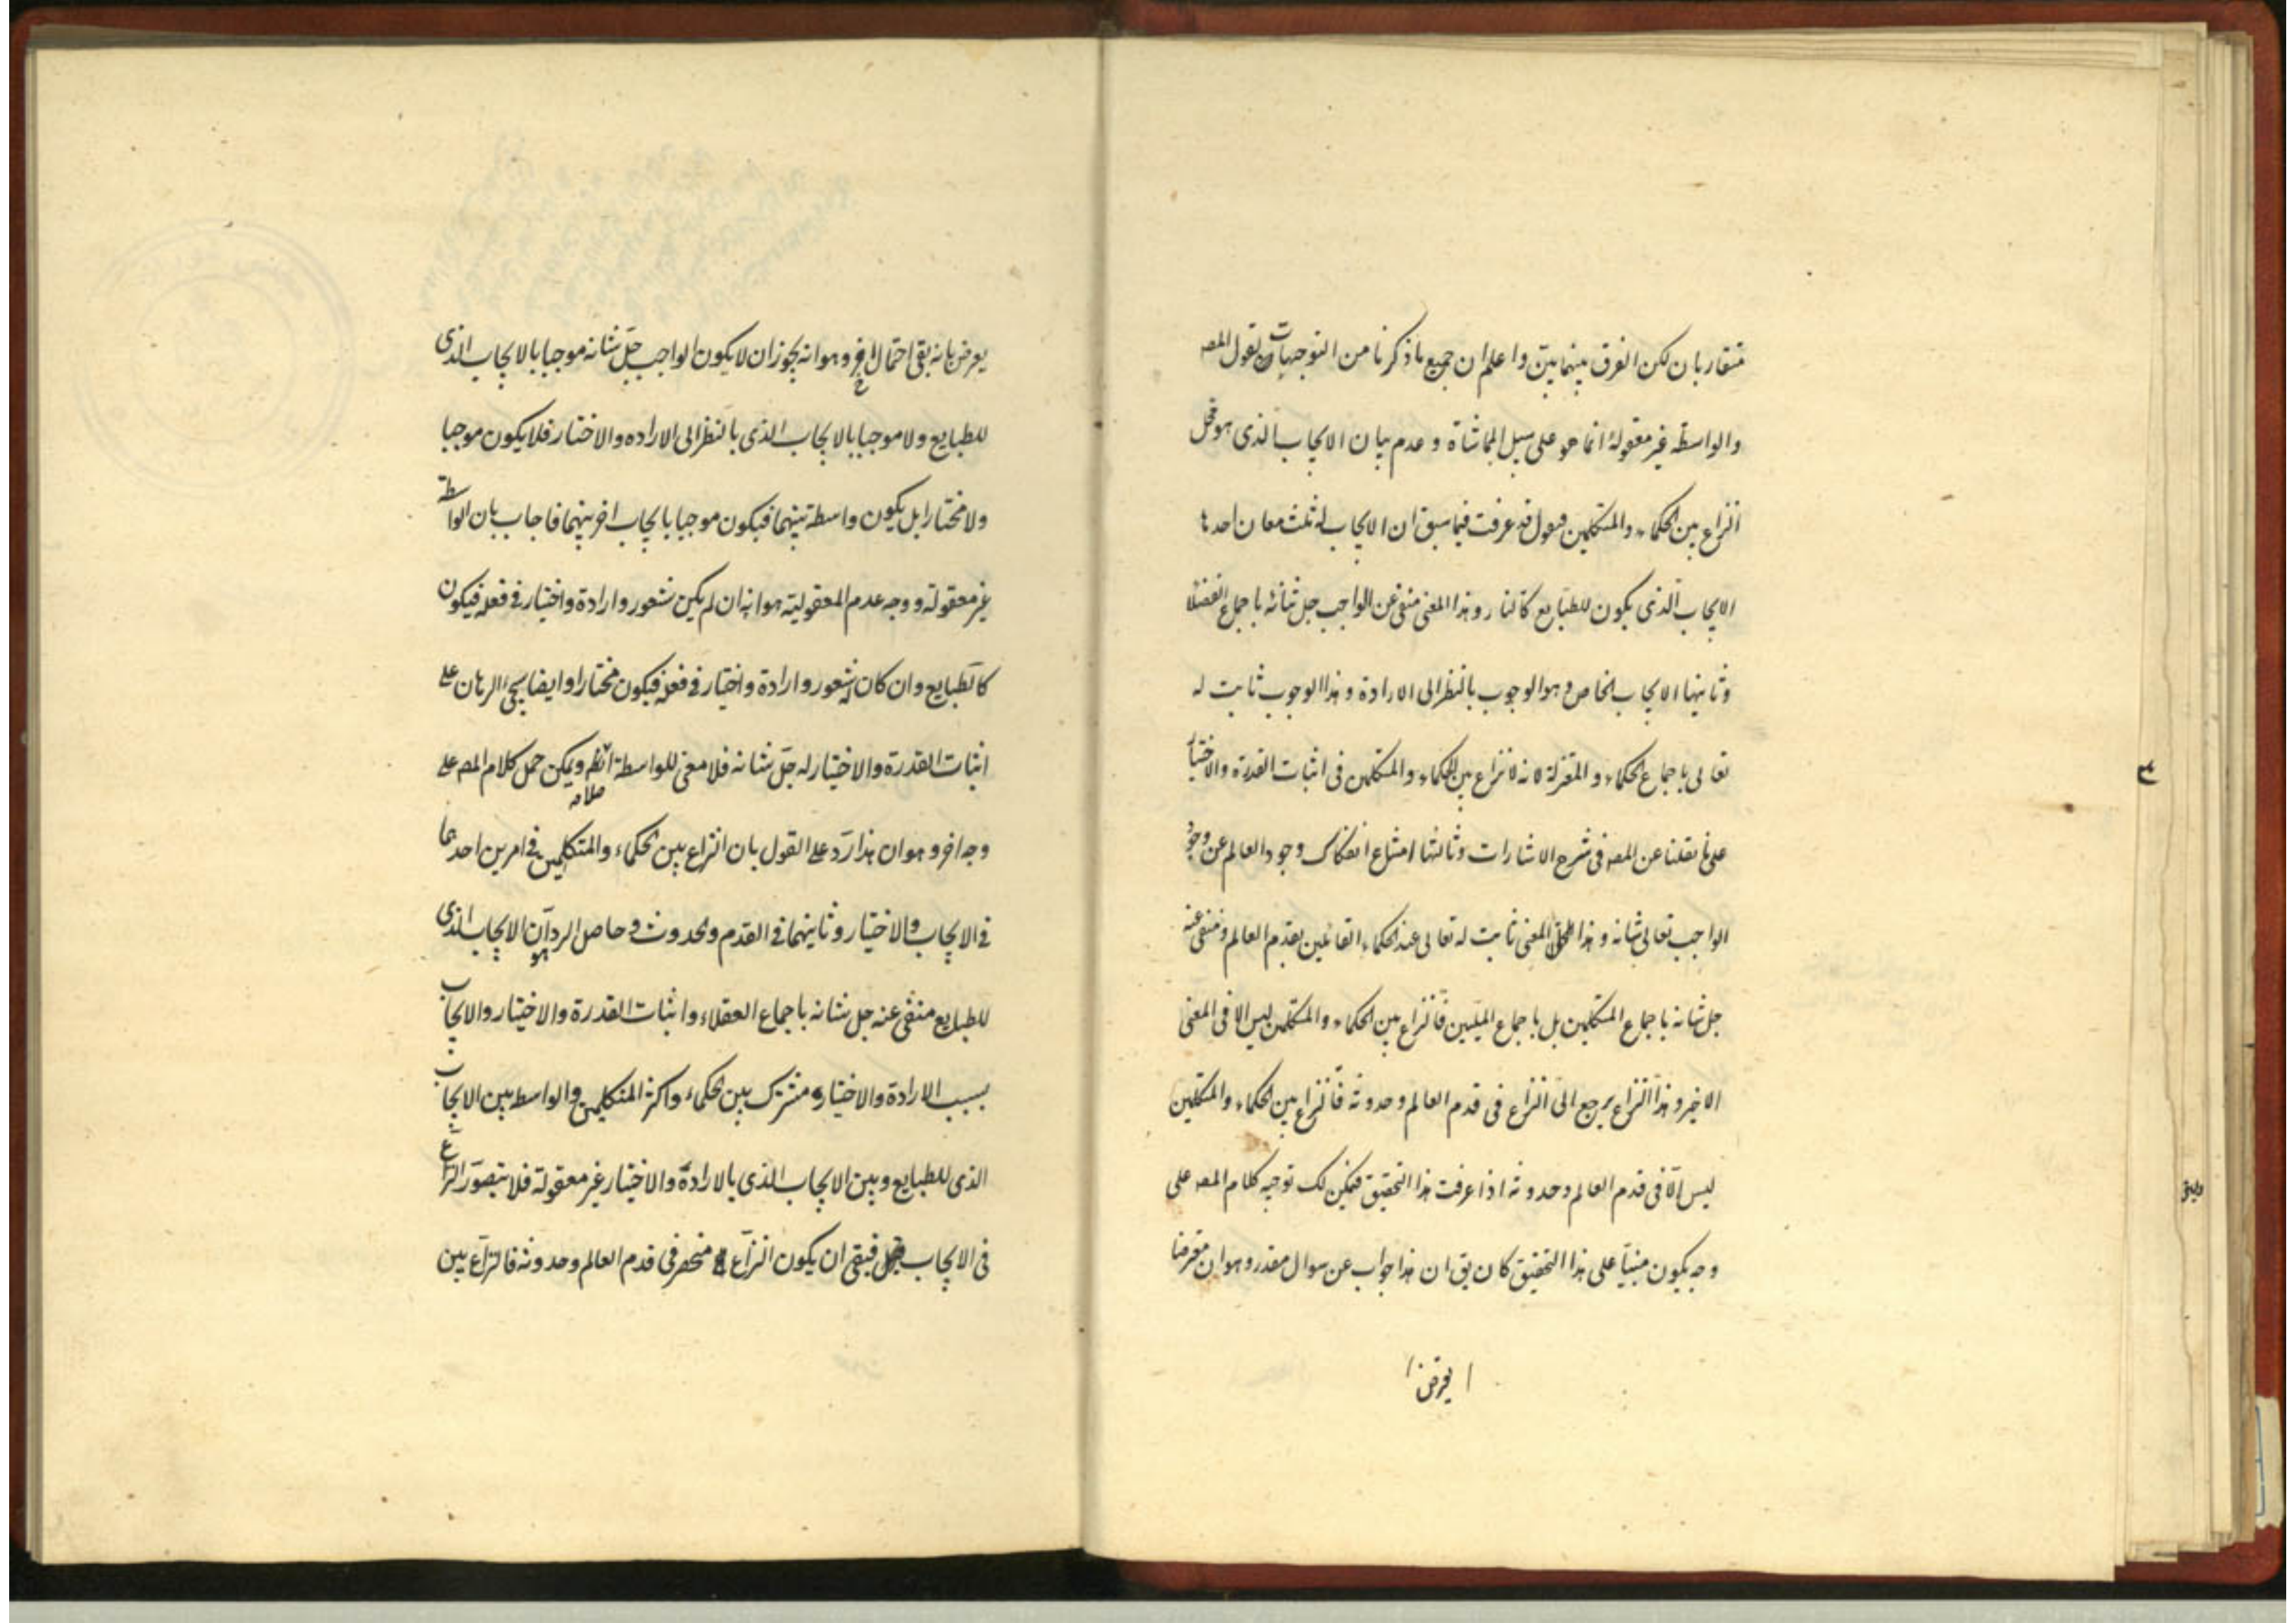 متقاربان لكن الفرق بينهما بيّن واعلم ان جميع ما ذكرنا من التوجيهات لقول المصه
والواسطه غير معقولة انما هو على سبيل المماشاة وعدم بيان الايجاب الذى هو محل
النزاع بين الحكماء والمتكلمين فنقول قد عرفت فيما سبق ان الايجاب له ثلث معان احدها
الايجاب الذى يكون للطبايع كالنار وهذا المعنى منفى عن الواجب جل شانه باجماع الفضلا
وثانيها الايجاب الخاص وهو الوجوب بالنظر الى الارادة وهذا الوجوب ثابت له
تعالى باجماع الحكماء والمعتزلة لانه لا نزاع بين الحكماء والمتكلمين فى اثبات القدرة والاختيار
على ما نقلنا عن المصه فى شرح الاشارات وثالثها امتناع انفكاك وجود العالم عن وجود
الواجب تعالى شانه وهذا المعنى ثابت له تعالى عند الحكماء القائلين بقدم العالم ومنفى عنه
جل شانه باجماع المتكلمين بل باجماع المليين فالنزاع بين الحكماء والمتكلمين ليس الا فى المعنى
الاخير وهذا النزاع يرجع الى النزاع فى قدم العالم وحدوثه فالنزاع بين الحكماء والمتكلمين
ليس الّا فى قدم العالم وحدوثه اذا عرفت هذا التحقيق فيمكن لك توجيه كلام المصه على
وجه يكون مبنيّا على هذا التحقيق كان يق ان هذا جواب عن سوال مقدر وهو ان معترضا
يعرض بانه بقى احتمال اخر وهو انه يجوز ان لا يكون الواجب جلّ شانه موجبا بالايجاب الذى
للطبايع ولا موجبا بالايجاب الذى بالنظر الى الاراده والاختيار فلا يكون موجبا
ولا مختارا بل يكون واسطة بينهما فيكون موجبا بايجاب اخر بينهما فاجاب بان الواسطة
غير معقولة ووجه عدم المعقولية هو انه ان لم يكن شعور وارادة واختيار فى فعله فيكون
كالطبايع وان كان له شعور وارادة واختيار فى فعله فيكون مختارا وايضا سيجئ البرهان على
اثبات القدرة والاختيار له جلّ شانه فلا معنى للواسطة ويمكن حمل كلام المصه على
وجه اخر وهو ان هذا ردّ على القول بان النزاع بين الحكماء والمتكلمين فى امرين احدهما
فى الايجاب والاختيار وثانيهما فى القدم والحدوث وحاصل الرد ان الايجاب الذى هو
للطبايع منفى عنه جل شانه باجماع العقلاء واثبات القدرة والاختيار والايجاب
بسبب الارادة والاختيار مشترك بين الحكماء واكثر المتكلمين والواسط بين الايجاب
الذى للطبايع وبين الايجاب الذى بالارادة والاختيار غير معقولة فلا يتصوّر النزاع
فى الايجاب فبقى ان يكون النزاع منحصر فى قدم العالم وحدوثه فالنزاع بين